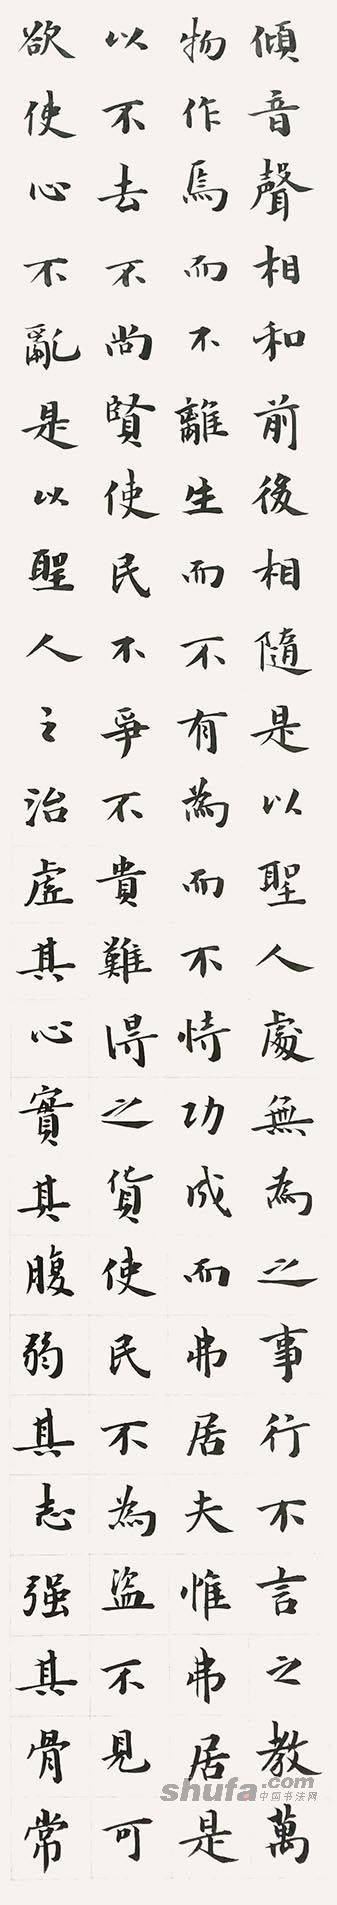 傾音聲相和前後相隨是以聖人處無為之事行不言之教萬
物作焉而不離生而不有為而不恃功成而弗居夫惟弗居是
以不去不尚賢使民不爭不貴難得之貨使民不為盜不見可
欲使心不亂是以聖人之治虛其心實其腹弱其志强其骨常
shufa.com
中国书法网